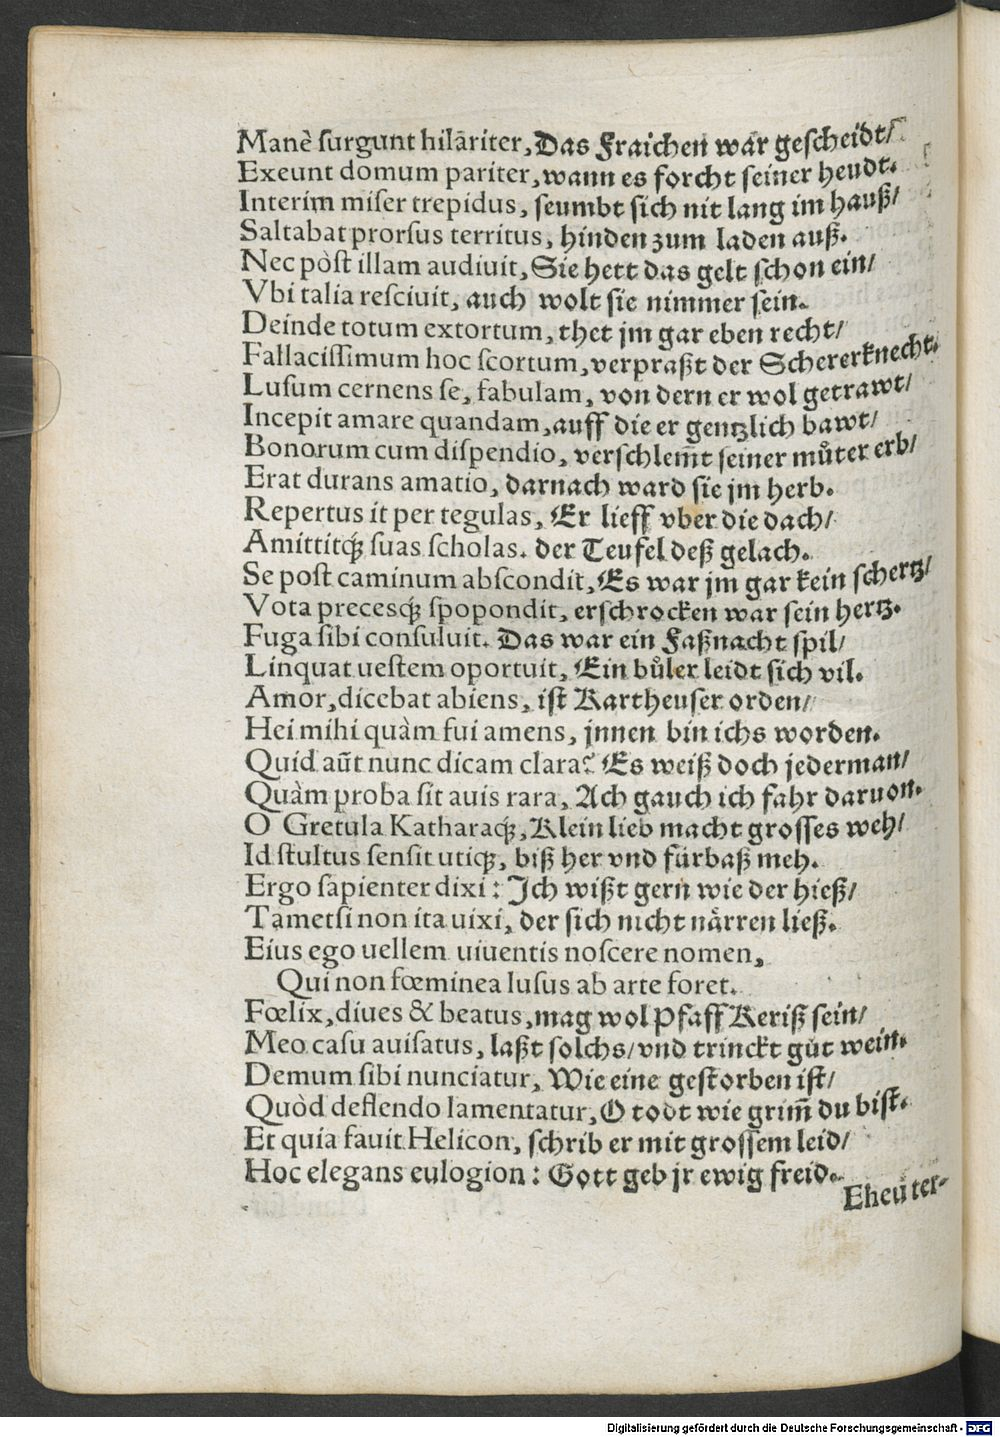 Manè ſurgunt hilãriter, Das Fraichen war geſcheidt/
Exeunt domum pariter, wann es forcht ſeiner heudt.
Interim miſer trepidus, ſeumbt ſich nit lang im hauß/
Saltabat prorſus territus, hinden zum laden auß.
Nec pòſt illam audiuit, Sie hett das gelt ſchon ein/
Vbi talia reſciuit, auch wolt ſie nimmer ſein.
Deinde totum extortum, thet jm gar eben recht/
Fallaciſſimum hoc ſcortum, verpraßt der Schererknecht.
Luſum cernens ſe, fabulam, von dern er wol getrawt/
Incepit amare quandam, auff die er gentzlich bawt/
Bonorum cum diſpendio, verſchlem̃t ſeiner můter erb/
Erat durans amatio, darnach ward ſie jm herb.
Repertus it per tegulas, Er lieff vber die dach/
Amittitq́ꝫ ſuas ſcholas. der Teufel deß gelach.
Se poſt caminum abſcondit, Es war jm gar kein ſchertz/
Vota precesq́ꝫ ſpopondit, erſchrocken war ſein hertz.
Fuga ſibi conſuluit. Das war ein Faßnacht ſpil/
Linquat ueſtem oportuit, Ein bůler leidt ſich vil.
Amor, dicebat abiens, iſt Kartheuſer orden/
Hei mihi quàm fui amens, jnnen bin ichs worden.
Quid aũt nunc dicam clara? Es weiß doch jederman/
Quàm proba ſit auis rara, Ach gauch ich fahr daruon.
O Gretula Katharaq́ꝫ, Klein lieb macht groſſes weh/
Id ſtultus ſenſit utiq́ꝫ, biß her vnd fürbaß meh.
Ergo ſapienter dixi: Ich wißt gern wie der hieß/
Tametſi non ita uixi, der ſich nicht nårren ließ.
Eius ego uellem uiuentis noſcere nomen,
Qui non fœminea luſus ab arte foret.
Fœlix, diues & beatus, mag wol Pfaff Keriß ſein/
Meo caſu auiſatus, laßt ſolchs/ vnd trinckt gůt wein.
Demum ſibi nunciatur, Wie eine geſtorben iſt/
Quòd deflendo lamentatur, O todt wie grim̃ du biſt.
Et quia fauit Helicon, ſchrib er mit groſſem leid/
Hoc elegans eulogion: Gott geb jr ewig freid.
Eheu ter-
Digitalisierung gefördert durch die Deutsche Forschungsgemeinschaft - DFG